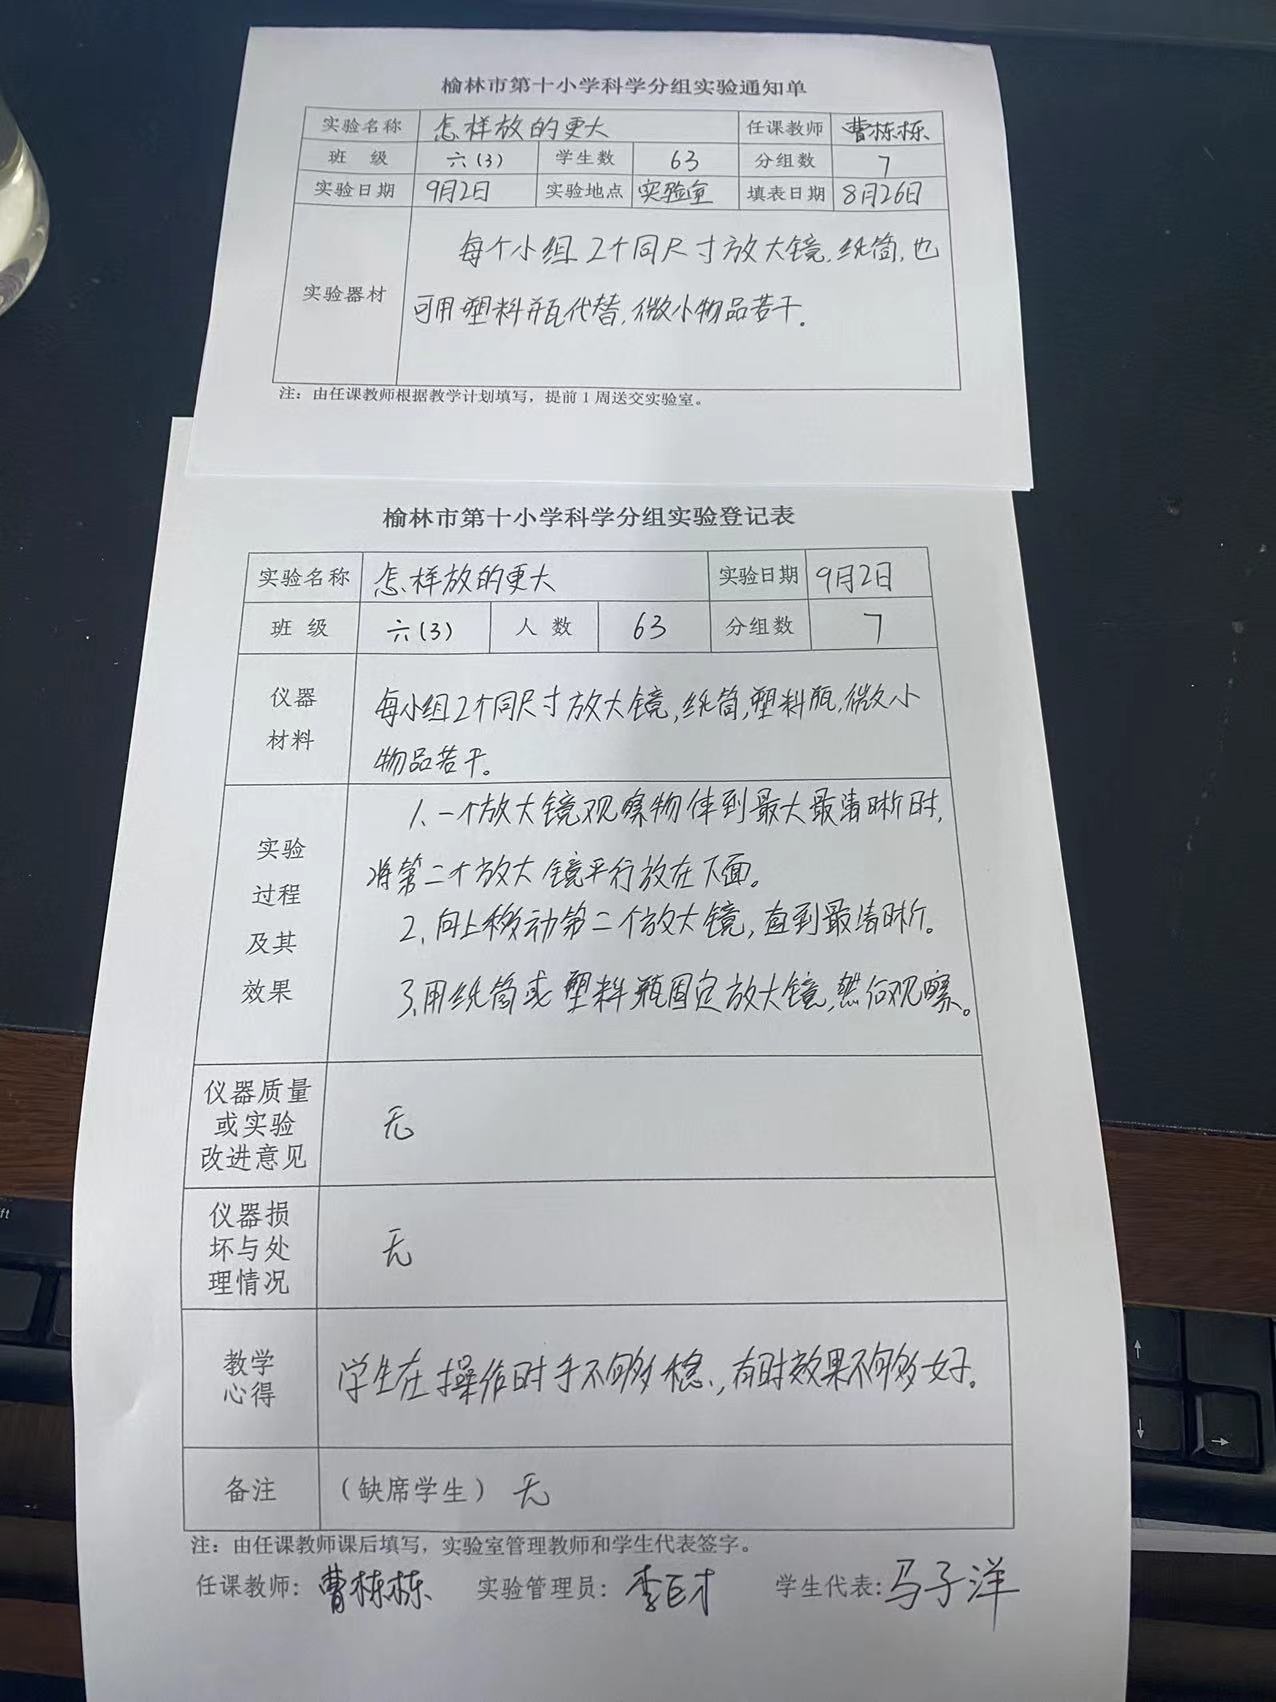 榆林市第十小学科学分组实验通知单
实验名称 怎样放的更大 任课教师 曹栋栋
班 级 六(3) 学生数 63 分组数 7
实验日期 9月2日 实验地点 实验室 填表日期 8月26日
每个小组2个同尺寸放大镜,纸筒,也
实验器材
可用塑料瓶代替,微小物品若干.
注：由任课教师根据教学计划填写，提前1周送交实验室。
榆林市第十小学科学分组实验登记表
实验名称 怎样放的更大 实验日期 9月2日
班 级 六(3) 人 数 63 分组数 7
仪器
材料
每小组2个同尺寸放大镜,纸筒,塑料瓶,微小
物品若干。
实验
过程
及其
效果
1、一个放大镜观察物体到最大最清晰时,
将第二个放大镜平行放在下面。
2、向上移动第二个放大镜,直到最清晰。
3、用纸筒或塑料瓶固定放大镜,然后观察。
仪器质量
或实验
改进意见
无
仪器损
坏与处
理情况
无
教学
心得
学生在操作时手不够稳,有时效果不够好。
备注 （缺席学生） 无
注：由任课教师课后填写，实验室管理教师和学生代表签字。
任课教师：曹栋栋 实验管理员：李巨才 学生代表：马子洋
ft